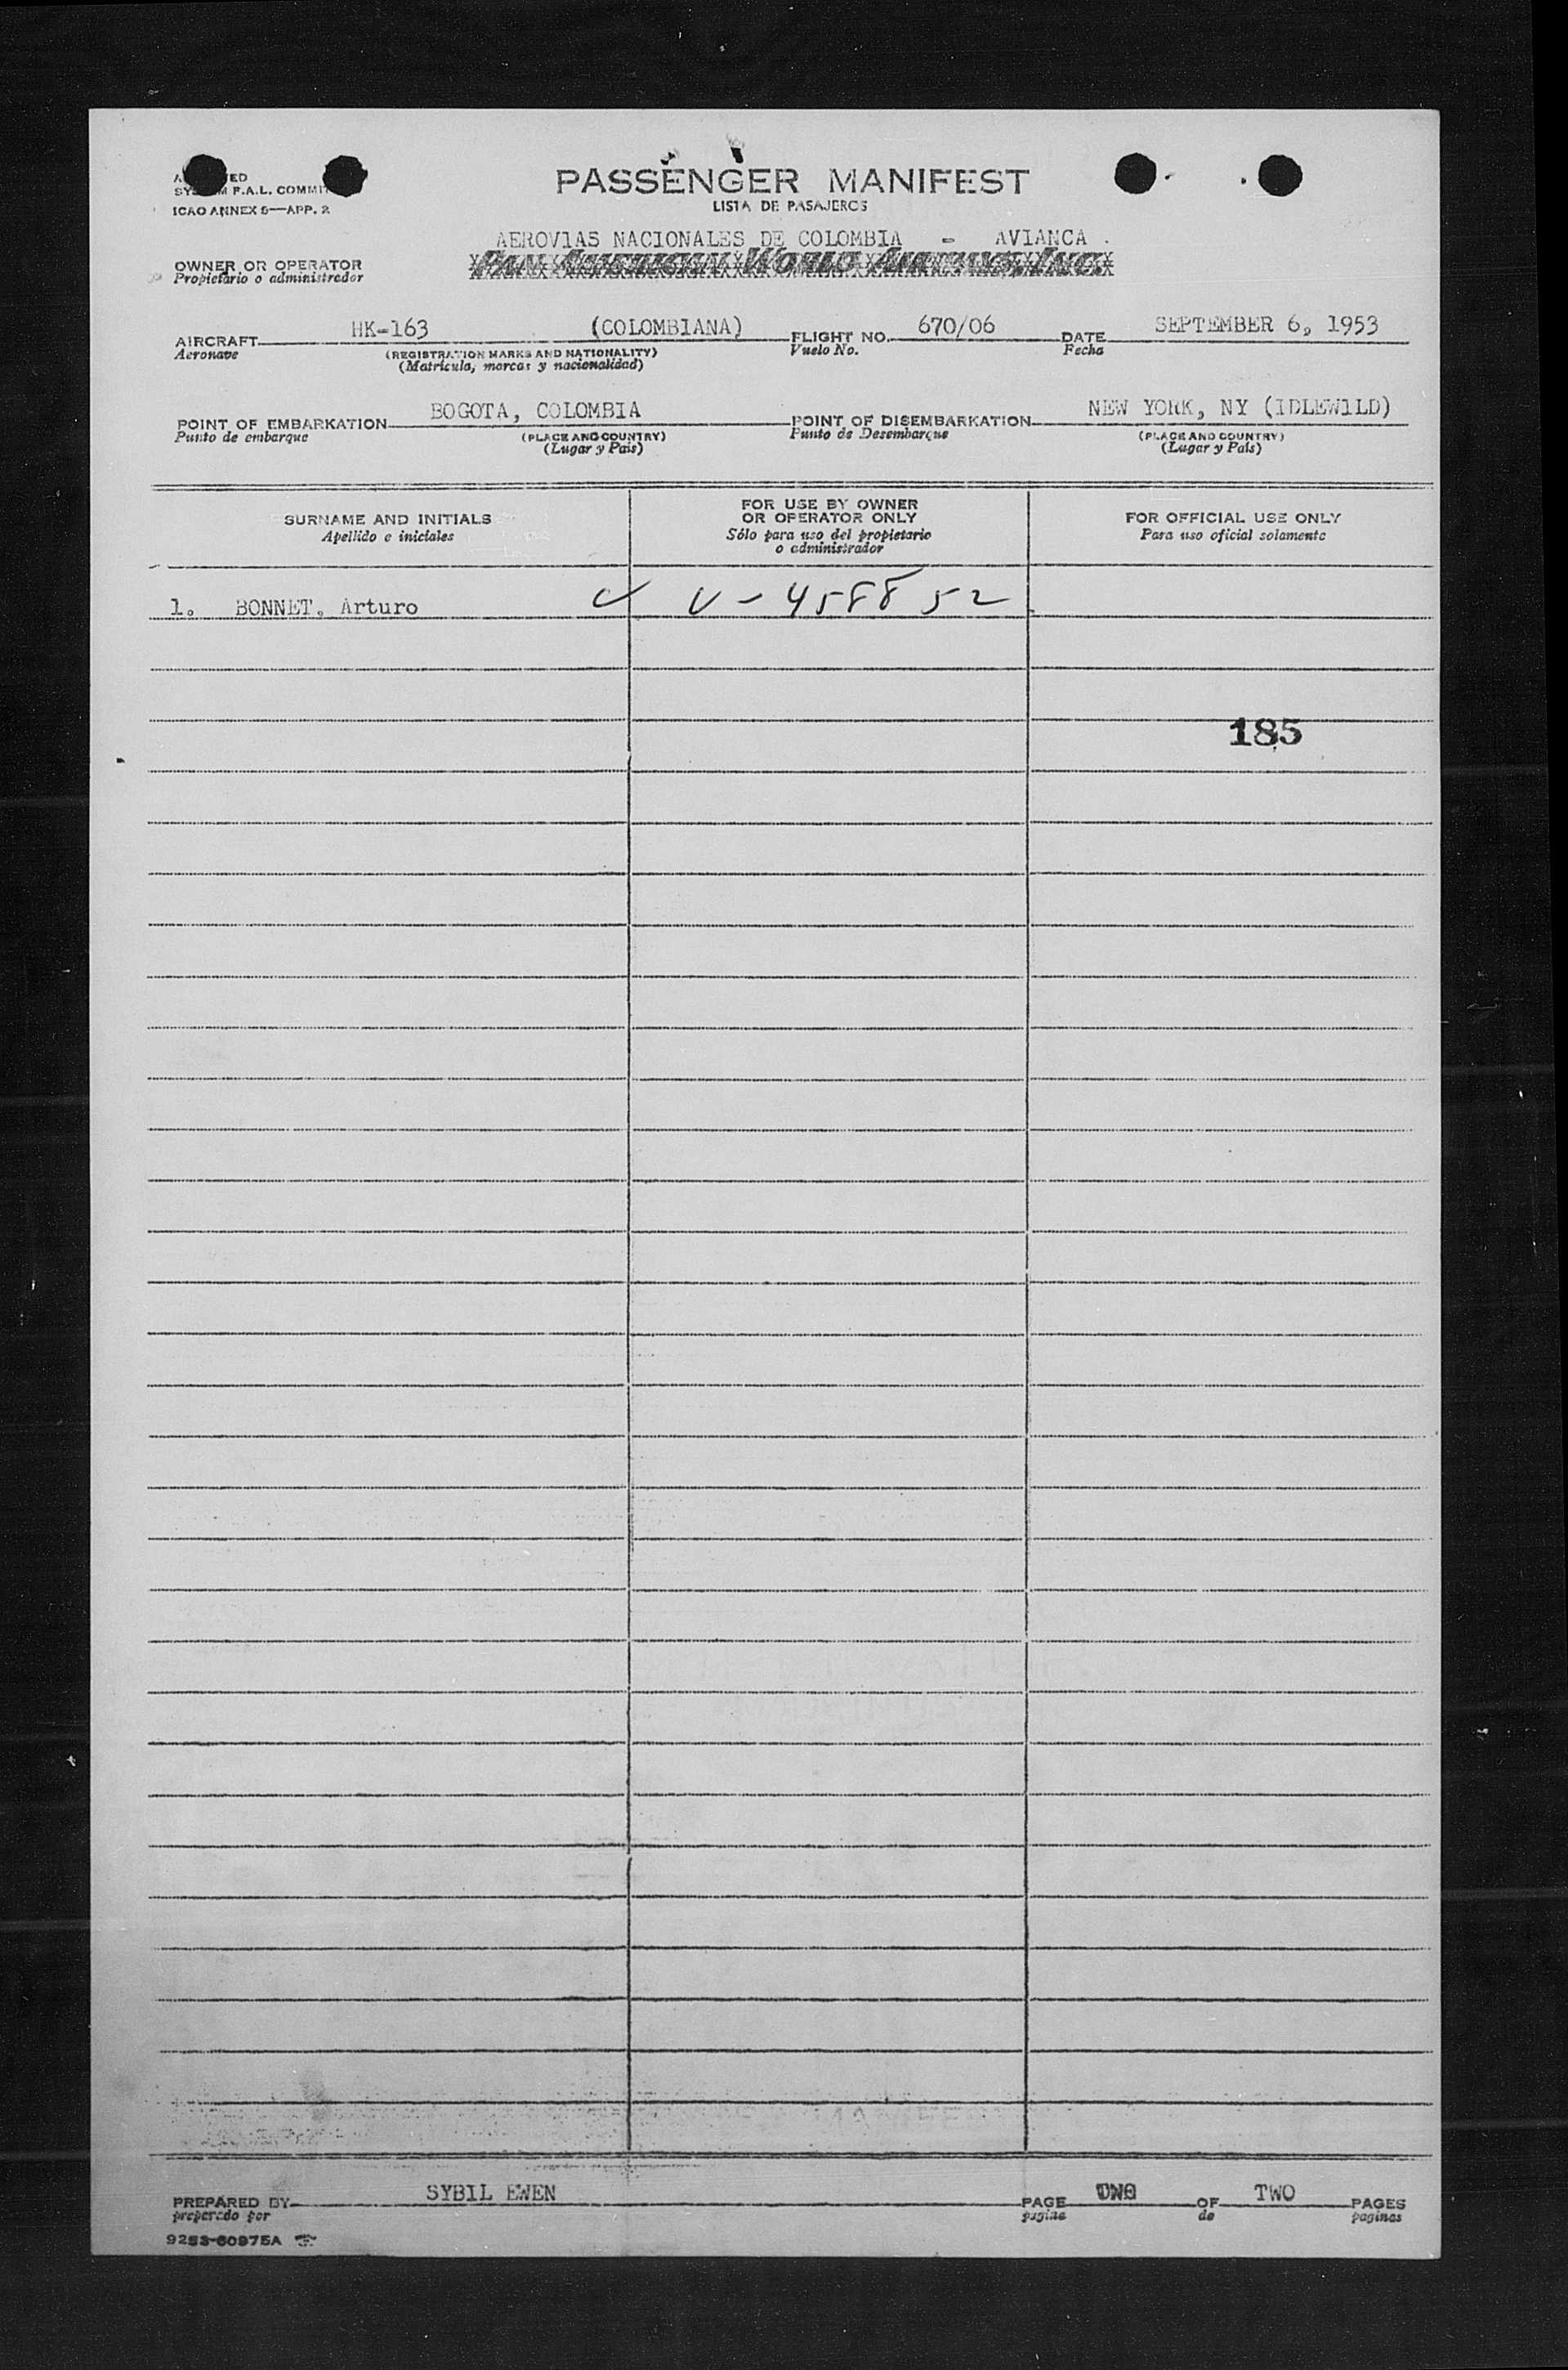 PASSENGER MANIFEST
LISTA DE PASAJEROS
ICAO ANNEX 9—APP. 2
AEROVIAS NACIONALES DE COLOMBIA - AVIANCA
PAN AMERICAN WORLD AIRWAYS, INC.
OWNER OR OPERATOR
Propietario o administrador
AIRCRAFT HK-163 (COLOMBIANA) FLIGHT NO. 670/06 DATE SEPTEMBER 6, 1953
Aeronave (REGISTRATION MARKS AND NATIONALITY) Vuelo No. Fecha
(Matrícula, marcas y nacionalidad)
POINT OF EMBARKATION BOGOTA, COLOMBIA POINT OF DISEMBARKATION NEW YORK, NY (IDLEWILD)
Punto de embarque (PLACE AND COUNTRY) Punto de Desembarque (PLACE AND COUNTRY)
(Lugar y País) (Lugar y País)
SURNAME AND INITIALS
Apellido e iniciales
FOR USE BY OWNER
OR OPERATOR ONLY
Sólo para uso del propietario
o administrador
FOR OFFICIAL USE ONLY
Para uso oficial solamente
1. BONNET, Arturo V-458852
185
PREPARED BY SYBIL EWEN PAGE OF TWO PAGES
preparado por pagina de paginas
9253-60975A